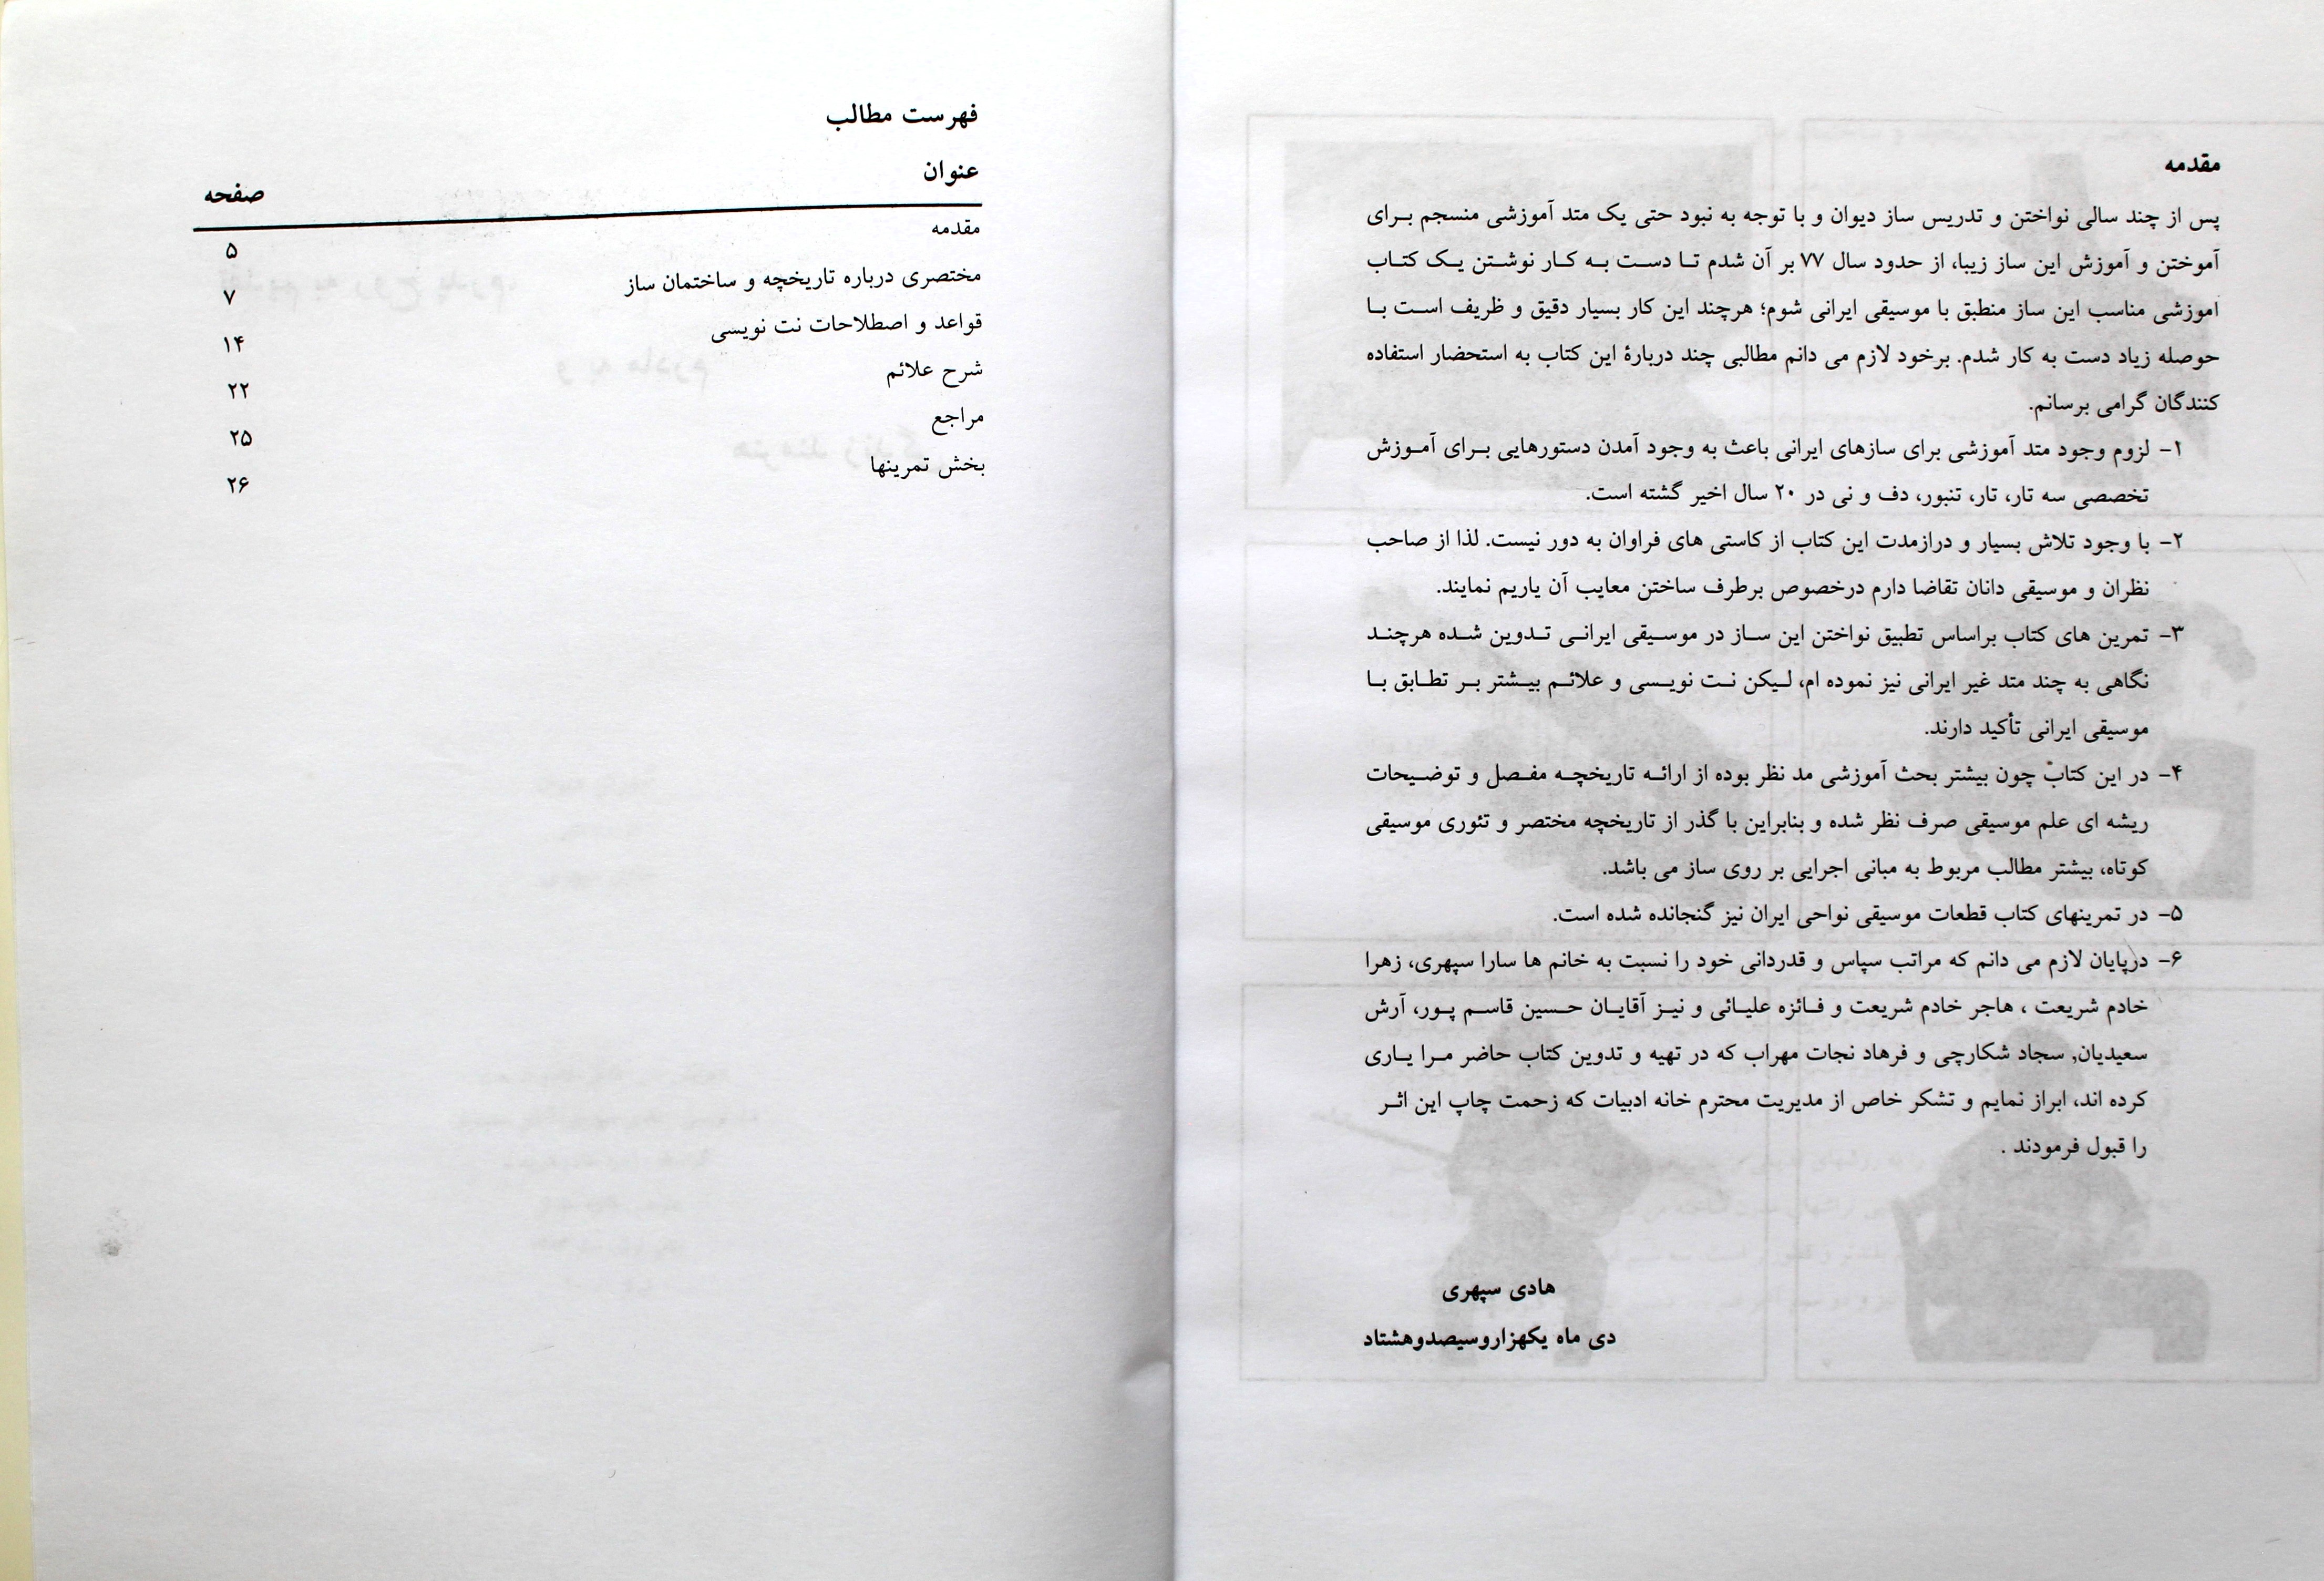 مقدمه
پس از چند سالی نواختن و تدریس ساز دیوان و با توجه به نبود حتی یک متد آموزشی منسجم برای
آموختن و آموزش این ساز زیبا، از حدود سال ۷۷ بر آن شدم تا دست به کار نوشتن یک کتاب
اموزشی مناسب این ساز منطبق با موسیقی ایرانی شوم؛ هرچند این کار بسیار دقیق و ظریف است با
حوصله زیاد دست به کار شدم. برخود لازم می دانم مطالبی چند دربارۀ این کتاب به استحضار استفاده
کنندگان گرامی برسانم.
۱- لزوم وجود متد آموزشی برای سازهای ایرانی باعث به وجود آمدن دستورهایی برای آموزش
تخصصی سه تار، تار، تنبور، دف و نی در ۲۰ سال اخیر گشته است.
۲- با وجود تلاش بسیار و درازمدت این کتاب از کاستی های فراوان به دور نیست. لذا از صاحب
نظران و موسیقی دانان تقاضا دارم درخصوص برطرف ساختن معایب آن یاریم نمایند.
۳- تمرین های کتاب براساس تطبیق نواختن این ساز در موسیقی ایرانی تدوین شده هرچند
نگاهی به چند متد غیر ایرانی نیز نموده ام، لیکن نت نویسی و علائم بیشتر بر تطابق با
موسیقی ایرانی تأکید دارند.
۴- در این کتاب چون بیشتر بحث آموزشی مد نظر بوده از ارائه تاریخچه مفصل و توضیحات
ریشه ای علم موسیقی صرف نظر شده و بنابراین با گذر از تاریخچه مختصر و تئوری موسیقی
کوتاه، بیشتر مطالب مربوط به مبانی اجرایی بر روی ساز می باشد.
۵- در تمرینهای کتاب قطعات موسیقی نواحی ایران نیز گنجانده شده است.
۶- درپایان لازم می دانم که مراتب سپاس و قدردانی خود را نسبت به خانم ها سارا سپهری، زهرا
خادم شریعت ، هاجر خادم شریعت و فائزه علیائی و نیز آقایان حسین قاسم پور، آرش
سعیدیان, سجاد شکارچی و فرهاد نجات مهراب که در تهیه و تدوین کتاب حاضر مرا یاری
کرده اند، ابراز نمایم و تشکر خاص از مدیریت محترم خانه ادبیات که زحمت چاپ این اثر
را قبول فرمودند .
هادی سپهری
دی ماه یکهزاروسیصدوهشتاد
فهرست مطالب
عنوان صفحه
مقدمه ۵
مختصری درباره تاریخچه و ساختمان ساز ۷
قواعد و اصطلاحات نت نویسی ۱۴
شرح علائم ۲۲
مراجع ۲۵
بخش تمرینها ۲۶